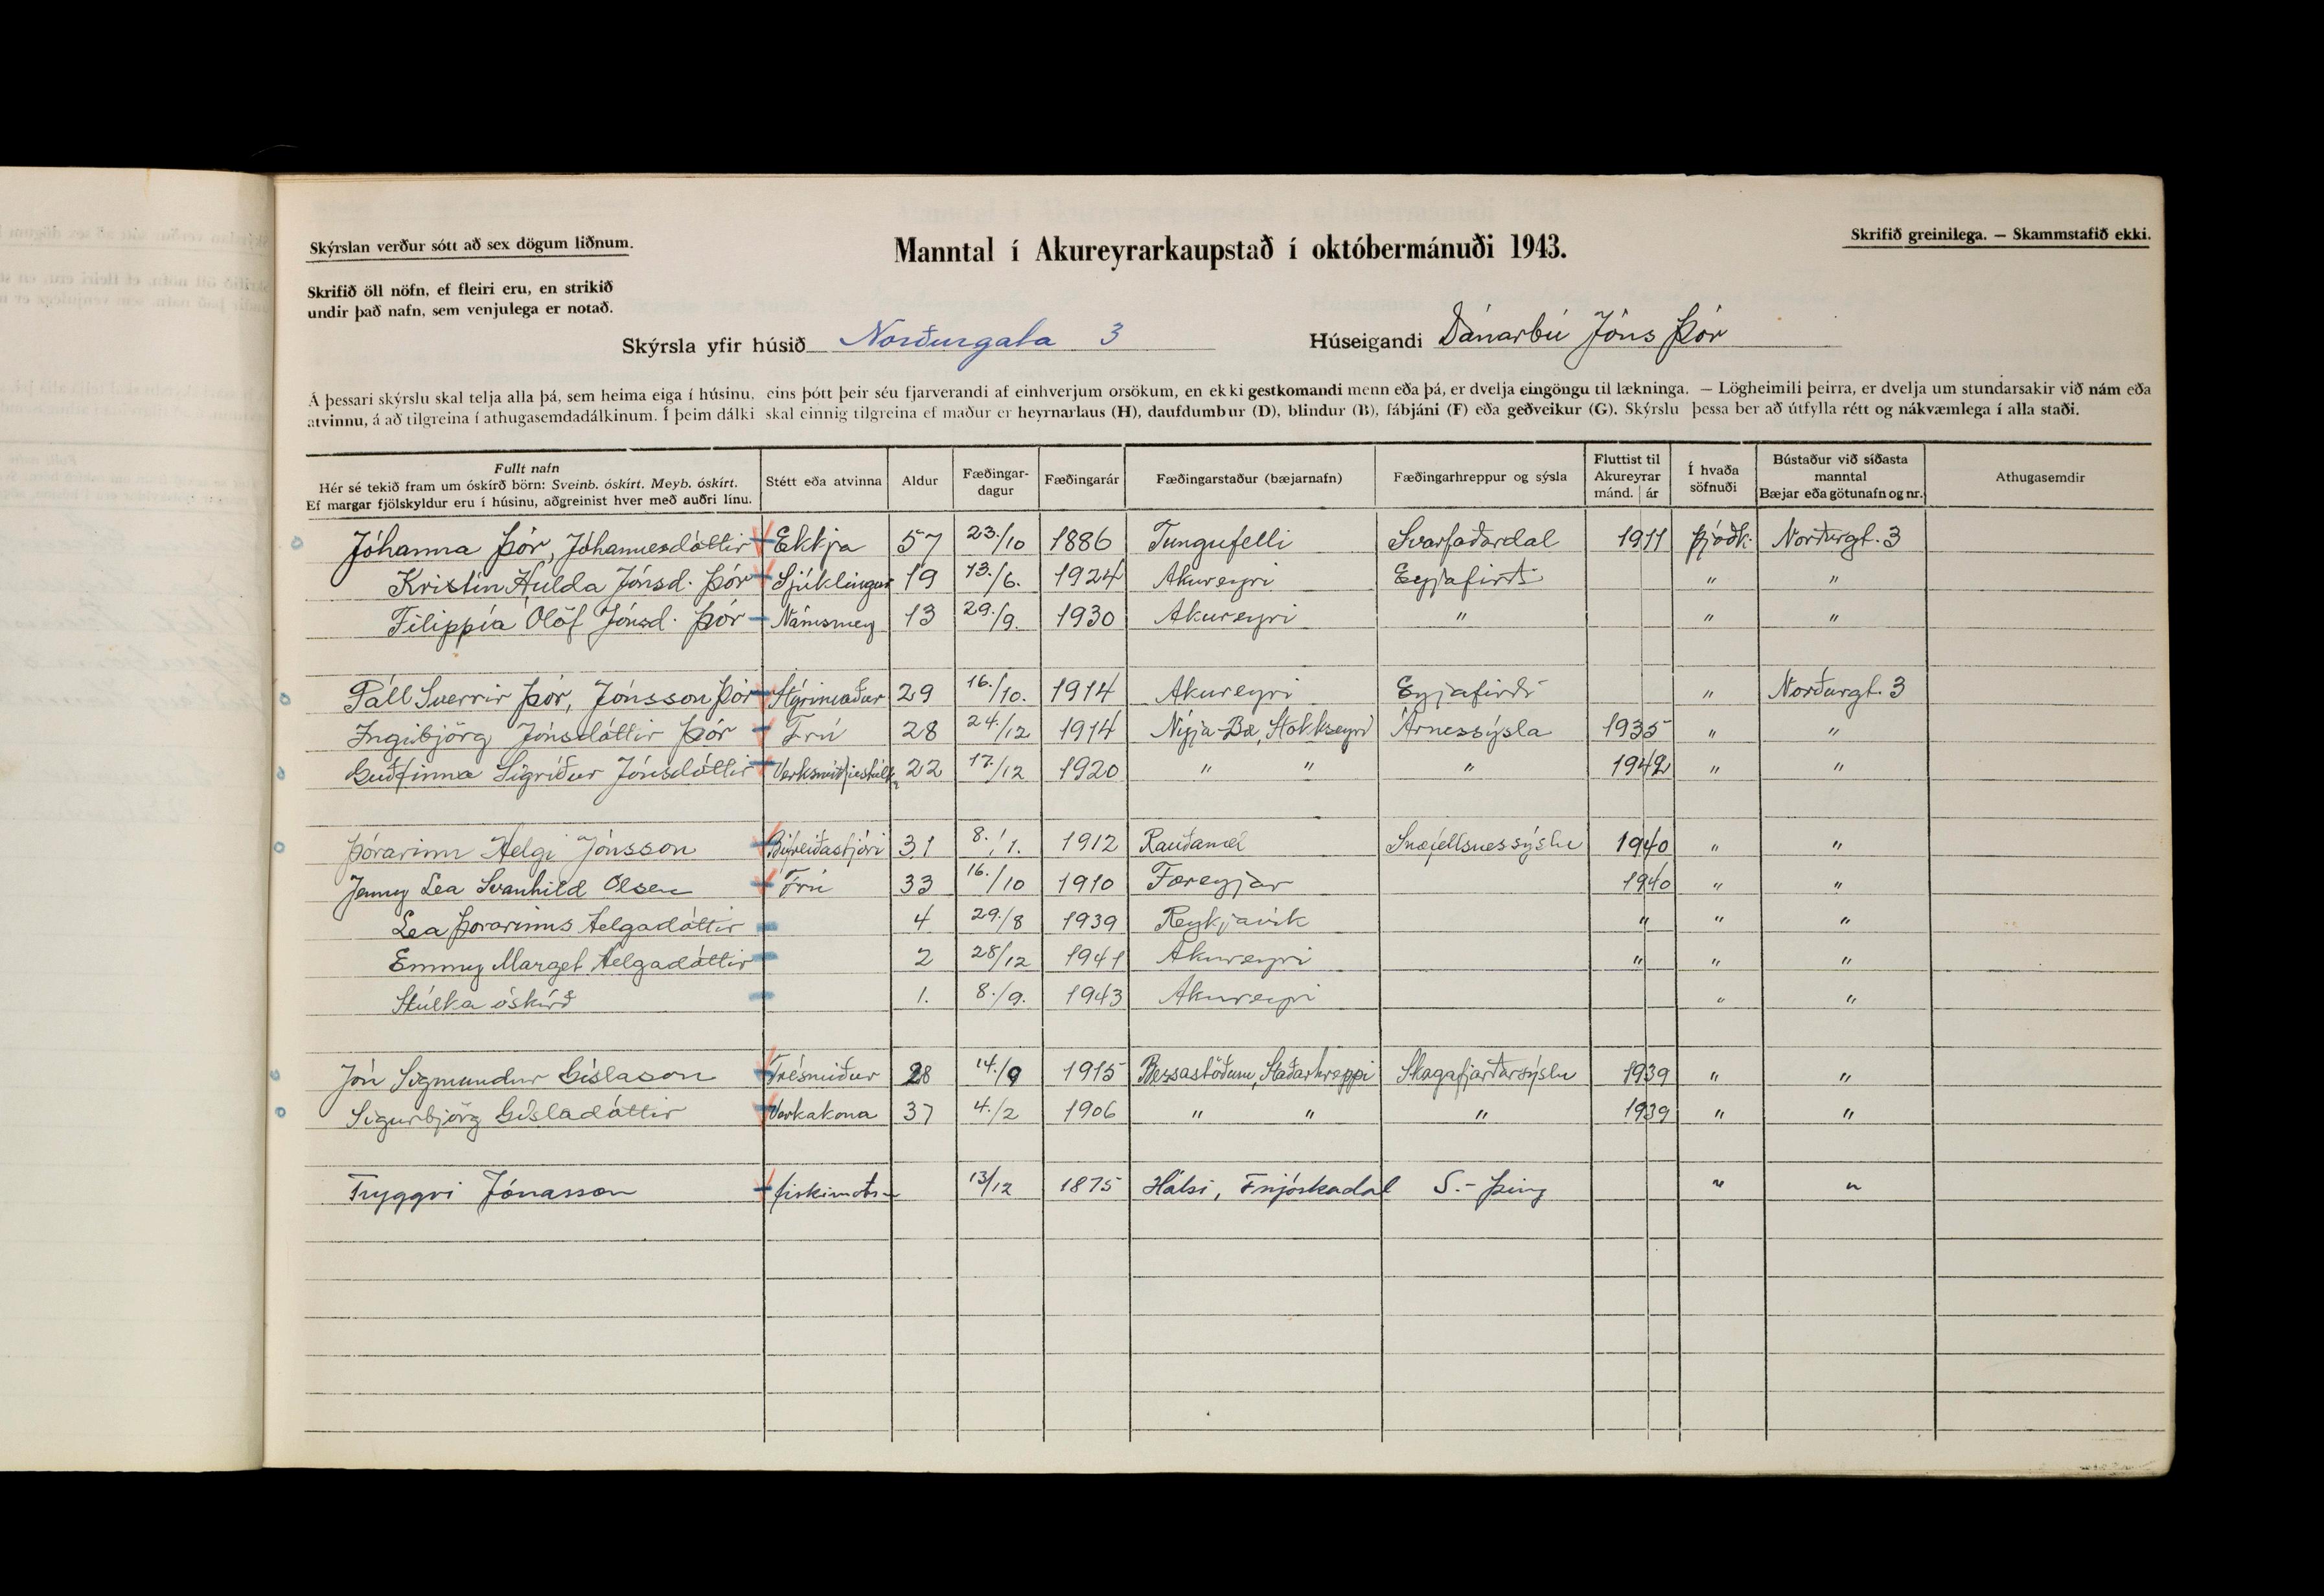 Skýrslan verður sótt að sex dögum liðnum.
Manntal í Akureyrarkaupstað í októbermánuði 1943.
Skrifið greinilega. — Skammstafið ekki.
Skrifið öll nöfn, ef fleiri eru, en strikið
undir það nafn, sem venjulega er notað.
Skýrsla yfir húsið Norðurgata 3 Húseigandi Dánarbú Jóns Þór
Á þessari skýrslu skal telja alla þá, sem heima eiga í húsinu, eins þótt þeir séu fjarverandi af einhverjum orsökum, en ekki gestkomandi menn eða þá, er dvelja eingöngu til lækninga. — Lögheimili þeirra, er dvelja um stundarsakir við nám eða
atvinnu, á að tilgreina í athugasemdadálkinum. Í þeim dálki skal einnig tilgreina ef maður er heyrnarlaus (H), daufdumbur (D), blindur (B), fábjáni (F) eða geðveikur (G). Skýrslu þessa ber að útfylla rétt og nákvæmlega í alla staði.
Fullt nafn
Hér sé tekið fram um óskírð börn: Sveinb. óskírt. Meyb. óskírt.
Ef margar fjölskyldur eru í húsinu, aðgreinist hver með auðri línu.
Stétt eða atvinna
Aldur
Fæðingar-
dagur
Fæðingarár
Fæðingarstaður (bæjarnafn)
Fæðingarhreppur og sýsla
Fluttist til
Akureyrar
mánd. ár
Í hvaða
söfnuði
Bústaður við síðasta
manntal
Bæjar eða götunafn og nr.
Athugasemdir
Jóhanna Þór, Jóhannesdóttir Ekkja 57 23./10 1886 Tungufelli Svarfaðardal 1911 Þjóðk. Norðurgt. 3
Kristín Hulda Jónsd. Þór Sjúklingur 19 13./6. 1924 Akureyri Eyjafirði " "
Filippía Ólöf Jónsd. Þór Námsmey 13 29./9. 1930 Akureyri " " "
Páll Sverrir Þór, Jónsson Þór Stýrimaður 29 16./10. 1914 Akureyri Eyjafirði " Norðurgt. 3
Ingibjörg Jónsdóttir Þór Frú 28 24./12 1914 Nýja-Bæ, Stokkseyri Árnessýsla 1935 " "
Guðfinna Sigríður Jónsdóttir Verksmiðjustúlka 22 17./12 1920 " " " 1942 " "
Þórarinn Helgi Jónsson Bifreiðastjóri 31 8./1. 1912 Rauðamel Snæfellsnessýslu 1940 " "
Jenny Lea Svanhild Olsen Frú 33 16./10 1910 Færeyjar 1940 " "
Lea Þorarinns Helgadóttir 4 29./8 1939 Reykjavík " " "
Emmy Marget Helgadóttir 2 28/12 1941 Akureyri " " "
Stúlka óskírð 1. 8./9. 1943 Akureyri " "
Jón Sigmundur Gíslason Trésmiður 28 14./9 1915 Bessastöðum, Staðarhreppi Skagafjarðarsýslu 1939 " "
Sigurbjörg Gísladóttir Verkakona 37 4./2 1906 " " " 1939 " "
Tryggvi Jónasson fiskimats- 13/12 1875 Hálsi, Fnjóskadal S.-Þing " "